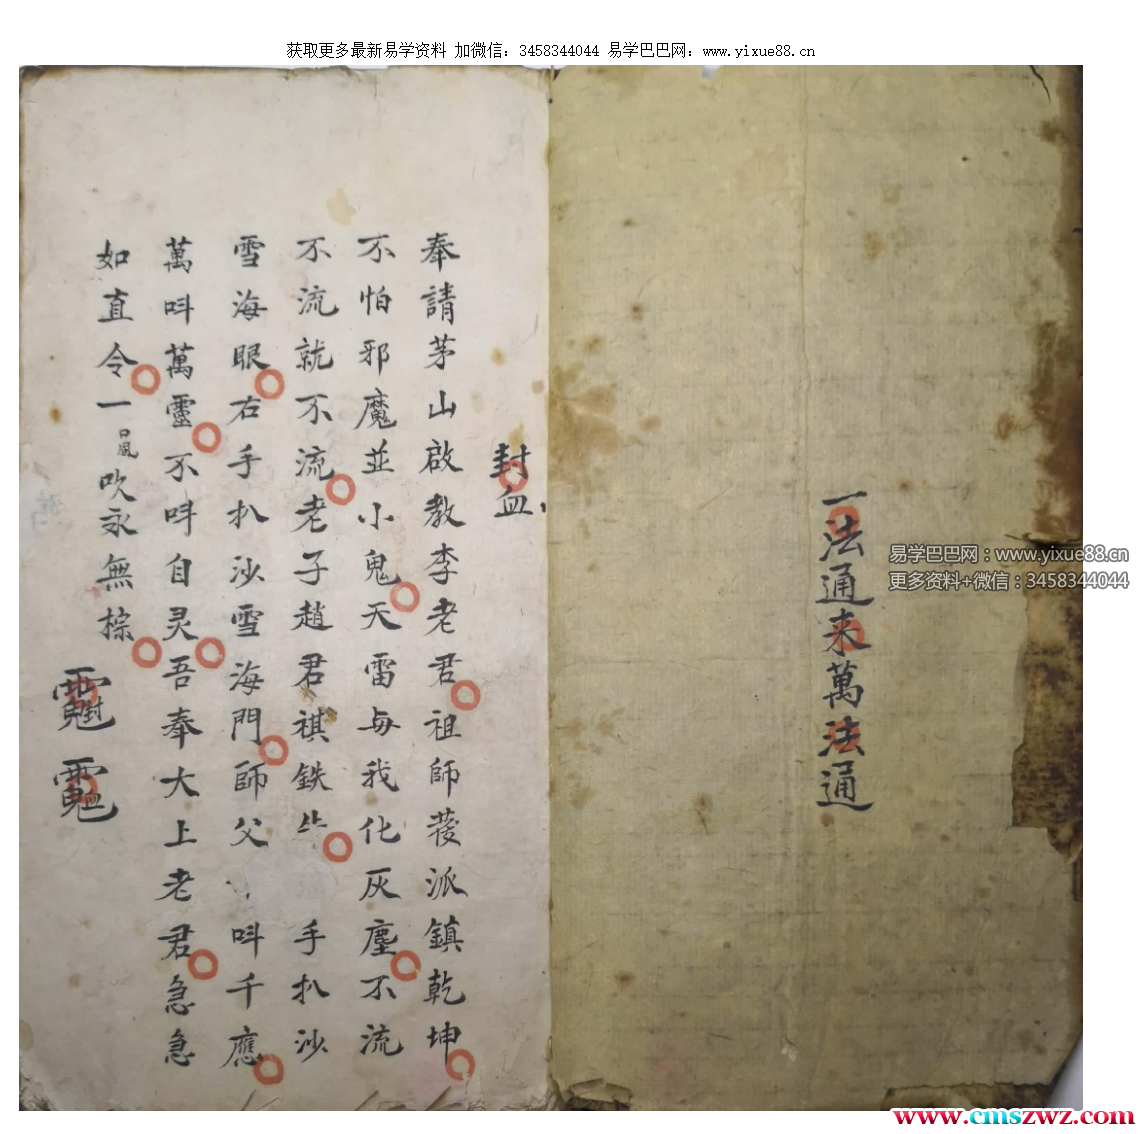 获取更多最新易学资料 加微信：3458344044 易学巴巴网：www.yixue88.cn
一法通来萬法通
易学巴巴网：www.yixue88.cn
更多资料+微信：3458344044
封血
奉請茅山啟教李老君祖師菝派鎮乾坤
不怕邪魔並小鬼天雷与我化灰塵不流
不流就不流老子趙君祺鉄 手扒沙
雪海眼右手扒沙雪海門師父 呌千應
萬呌萬靈不呌自灵吾奉大上老君急急
如直令一 吹永無椋
www.cmszwz.com